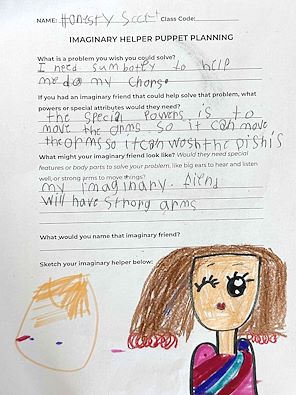 NAME: Honesty Scott Class Code:
IMAGINARY HELPER PUPPET PLANNING
What is a problem you wish you could solve?
I need sumbotty to help
me do my Chores
If you had an imaginary friend that could help solve that problem, what
powers or special attributes would they need?
the special Powers is to
move the arms so it can move
the arms so it can wash the Dishis
What might your imaginary friend look like? Would they need special
features or body parts to solve your problem, like big ears to hear and listen
well, or strong arms to move things?
my imaginary. friend
Will have Strong arms
What would you name that imaginary friend?
Sketch your imaginary helper below: